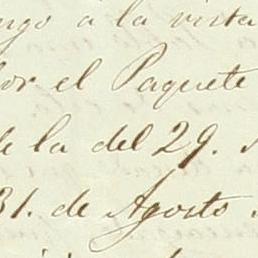 ngo a la vista
por el Paquete
de la del 29.
31. de Agosto